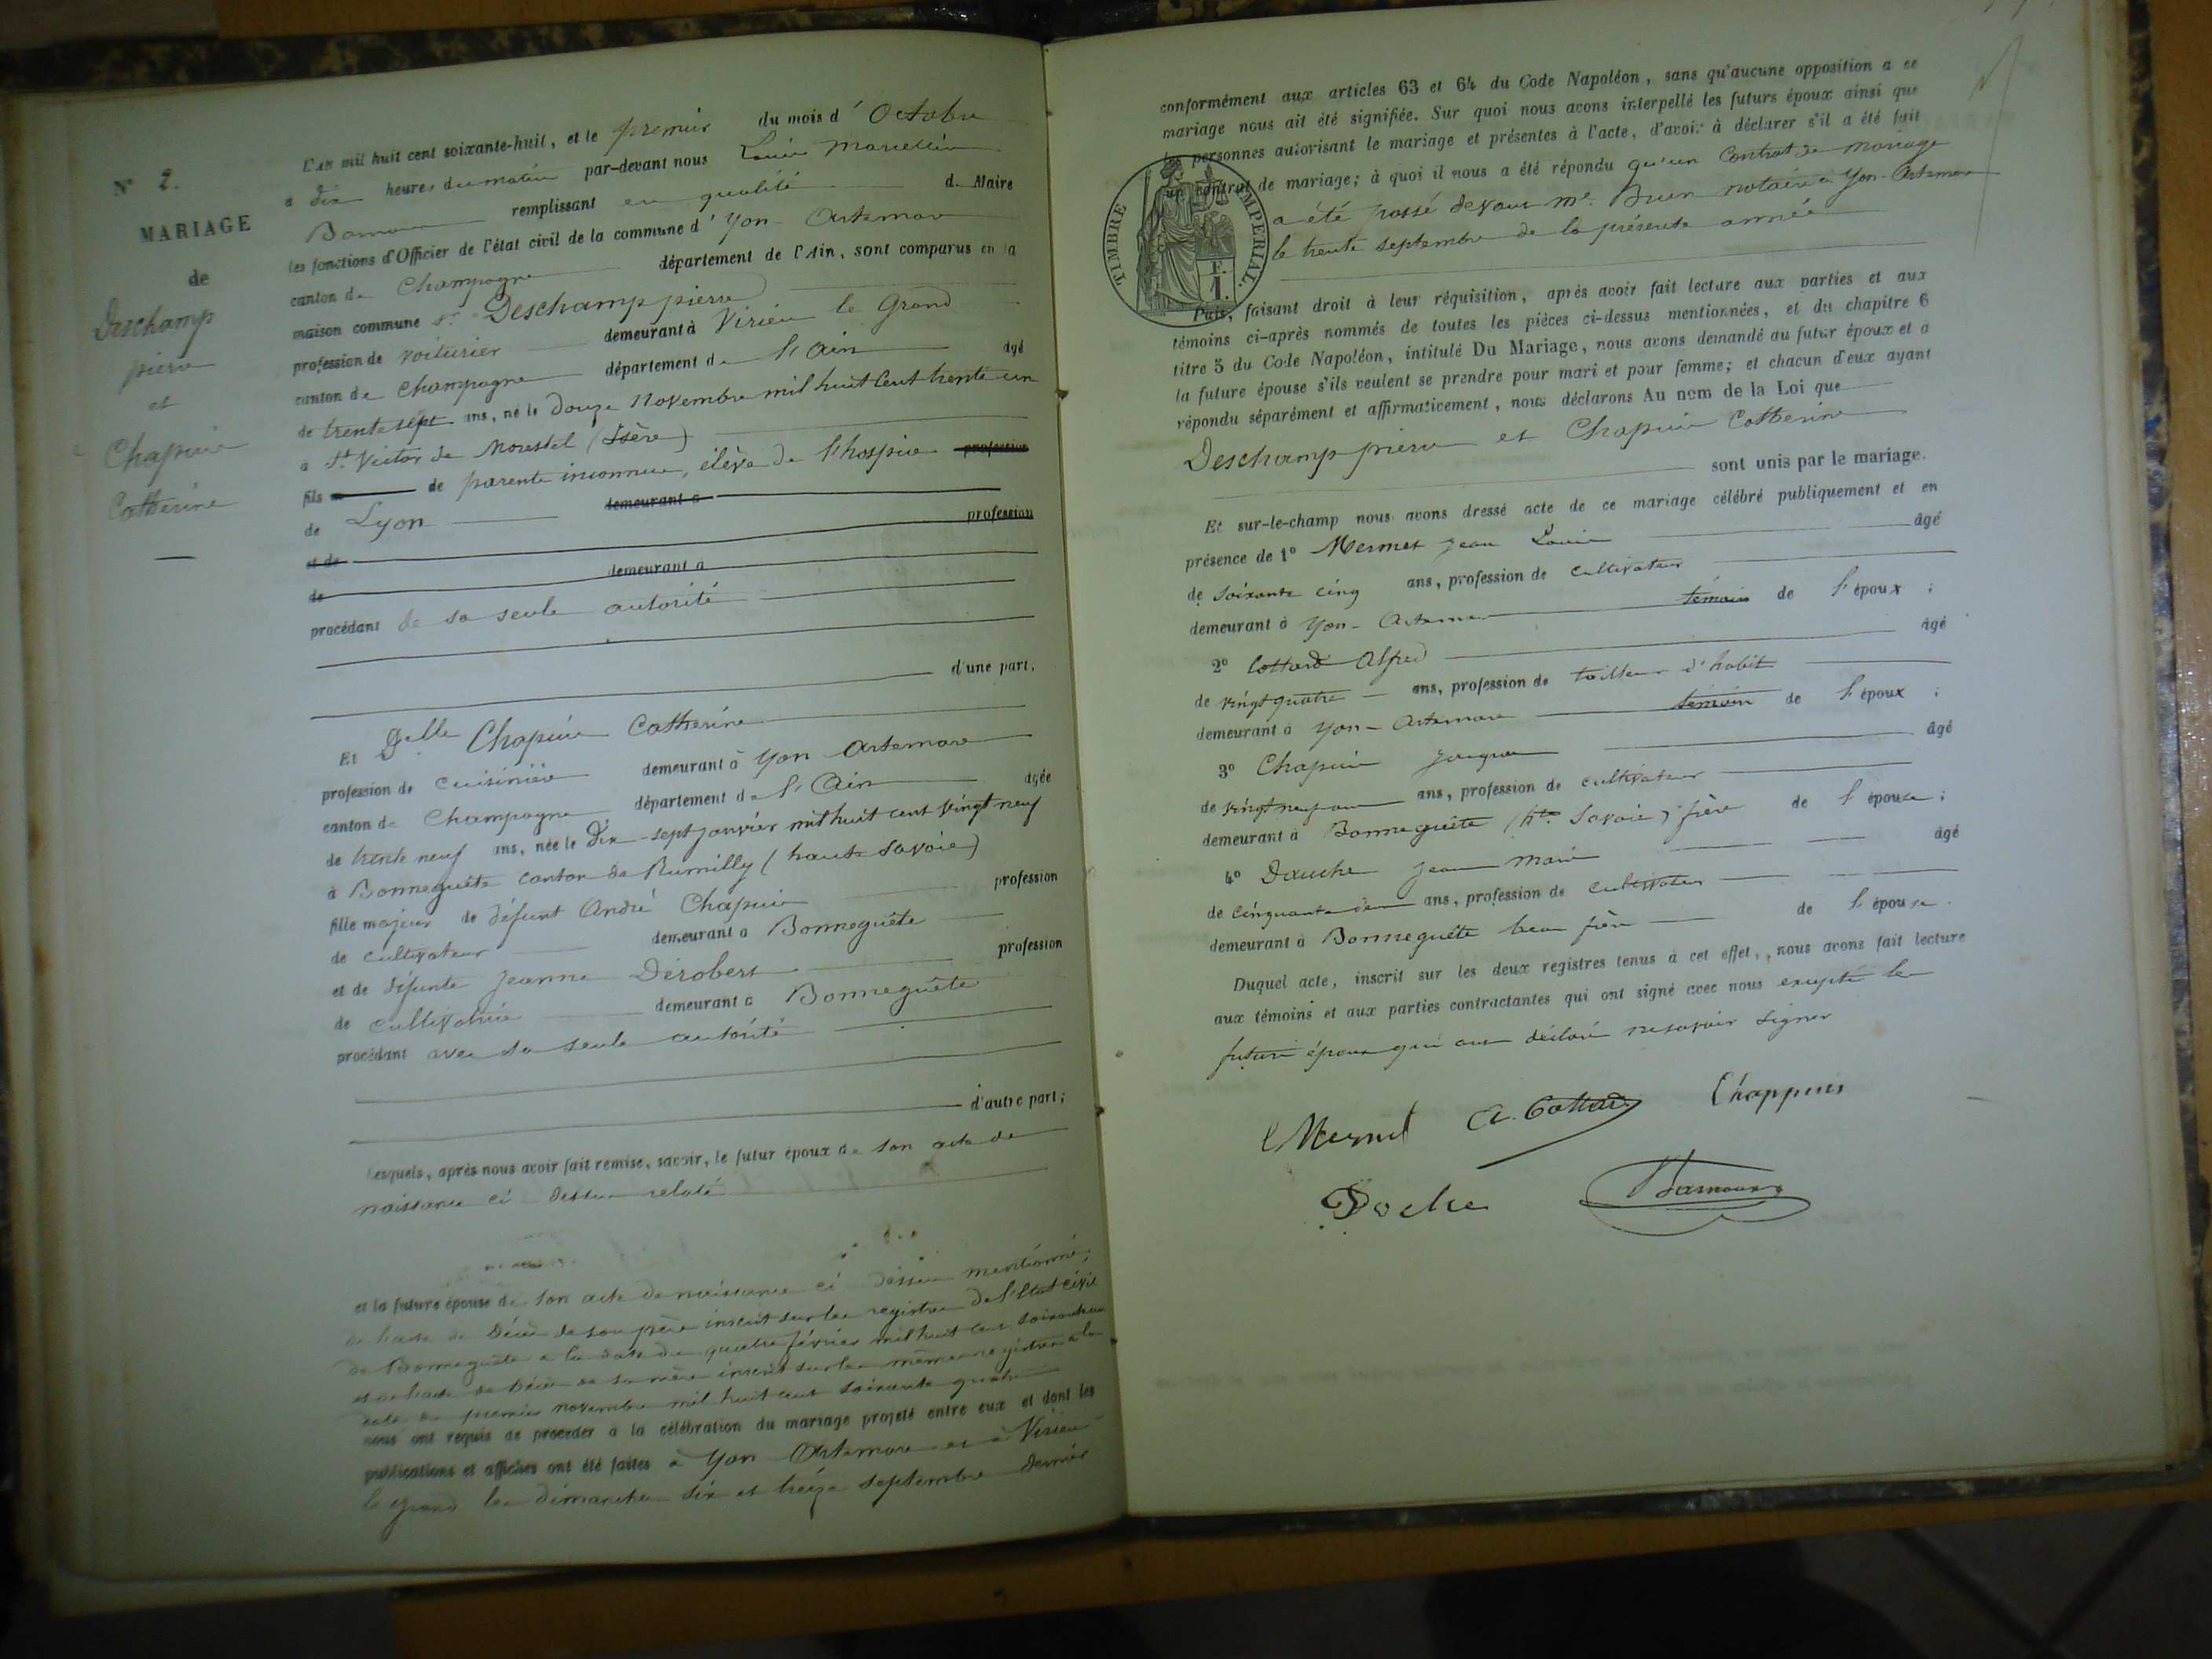 N° 2.
MARIAGE
de
Deschamp
pierre
et
Chapuis
Catherine
L'an mil huit cent soixante-huit, et le premier du mois d'Octobre
à dix heures du matin par-devant nous Louis Marcellin
remplissant en qualité de Maire
les fonctions d'Officier de l'état civil de la commune d'Yon-Artemare
canton de Champagne département de l'Ain, sont comparus en la
maison commune Sr Deschamp pierre
profession de voiturier demeurant à Virieu le Grand
canton de Champagne département de l'Ain âgé
de trente sept ans, né le douze Novembre mil huit cent trente un
à St Victor de Morestel (Isère)
fils de parents inconnus, élève de l'hospice profession
de Lyon demeurant à
et de profession
de demeurant à
procédant de sa seule autorité
d'une part,
Et Delle Chapuis Catherine
profession de cuisinière demeurant à Yon Artemare
canton de Champagne département de l'Ain âgée
de trente neuf ans, née le Dix-sept janvier mil huit cent vingt neuf
à Bonneguête canton de Rumilly (haute Savoie)
fille majeure de défunt André Chapuis profession
de cultivateur demeurant à Bonneguête
et de défunte Jeanne Dérobert profession
de cultivatrice demeurant à Bonneguête
procédant avec sa seule autorité
d'autre part;
Lesquels, après nous avoir fait remise, savoir, le futur époux de son acte de
naissance ci dessus relaté
et la future épouse de son acte de naissance ci dessus mentionné,
de l'acte de Décès de son père inscrit sur les registres de l'Etat civil
de Bonneguête à la date du quatre février mil huit cent soixante
et de l'acte de Décès de sa mère inscrit sur les mêmes registres à la
date du premier novembre mil huit cent soixante quatre
nous ont requis de procéder à la célébration du mariage projeté entre eux et dont les
publications et affiches ont été faites à Yon Artemare et à Virieu
le grand les dimanches six et treize septembre dernier
conformément aux articles 63 et 64 du Code Napoléon, sans qu'aucune opposition à ce
mariage nous ait été signifiée. Sur quoi nous avons interpellé les futurs époux ainsi que
les personnes autorisant le mariage et présentes à l'acte, d'avoir à déclarer s'il a été fait
un contrat de mariage; à quoi il nous a été répondu qu'un Contrat de mariage
a été passé devant Me Brun notaire à Yon-Artemare
le trente septembre de la présente année
TIMBRE IMPÉRIAL.
F.
1.
Puis, faisant droit à leur réquisition, après avoir fait lecture aux parties et aux
témoins ci-après nommés de toutes les pièces ci-dessus mentionnées, et du chapitre 6
titre 5 du Code Napoléon, intitulé Du Mariage, nous avons demandé au futur époux et à
la future épouse s'ils veulent se prendre pour mari et pour femme; et chacun d'eux ayant
répondu séparément et affirmativement, nous déclarons Au nom de la Loi que
Deschamp pierre et Chapuis Catherine
sont unis par le mariage.
Et sur-le-champ nous avons dressé acte de ce mariage célébré publiquement et en
présence de 1° Mermet Jean Louis âgé
de soixante cinq ans, profession de cultivateur
demeurant à Yon-Artemare témoin de l'époux;
2° Cottard Alfred âgé
de vingt quatre ans, profession de tailleur d'habit
demeurant à Yon-Artemare témoin de l'époux;
3° Chapuis Jacques âgé
de vingt neuf ans, profession de cultivateur
demeurant à Bonneguête (hte Savoie) frère de l'épouse;
4° Dauche Jean Marie âgé
de cinquante deux ans, profession de cultivateur
demeurant à Bonneguête beau frère de l'épouse.
Duquel acte, inscrit sur les deux registres tenus à cet effet, nous avons fait lecture
aux témoins et aux parties contractantes qui ont signé avec nous excepté les
futurs époux qui ont déclaré ne savoir signer
Mermet A. Cottard Chappuis
Doche